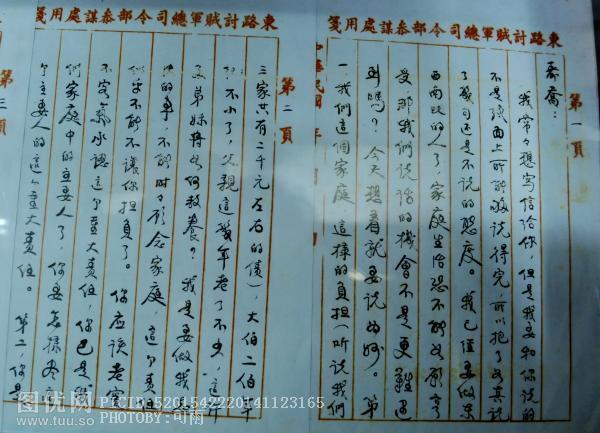 東路討賊軍總司令部叅謀處用箋
第一頁
我常々想寫信給你,但是我要和你說的
不是上所能說得完,所以抱了如其說
了幾句还是不說的態度。我已經要做东
西南北的人了,家庭生活恐不能如願享
受,那我們說話的機會不是更難遇
到嗎?今天想着就要說为妙。第
一、我們這個家庭,這樣的負担(听說我們
中華民國 年
東路討賊軍總司令部叅謀處用箋
第二頁
三家共有二千元左右的債),大伯二伯年
不小了,父親這幾年老了不少,這
弟妹將如何教養?我是要做我
的事,不能时々顾念家庭,這个責任
似乎不能不讓你担負了。你应该老实
不客氣承認這个重大責任,你已是我
們家庭中的主要人了,你要怎樣
个主要人的這个重大責任。第二,你是
第三頁
图优网 PICID:5201542220141123165
www.tuu.so PHOTOBY:可雨